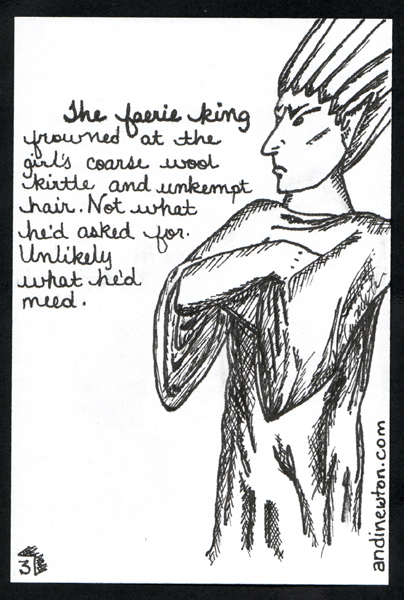 The faerie king
frowned at the
girl's coarse wool
kirtle and unkempt
hair. Not what
he'd asked for.
Unlikely
what he'd
need.
andinewton.com
3